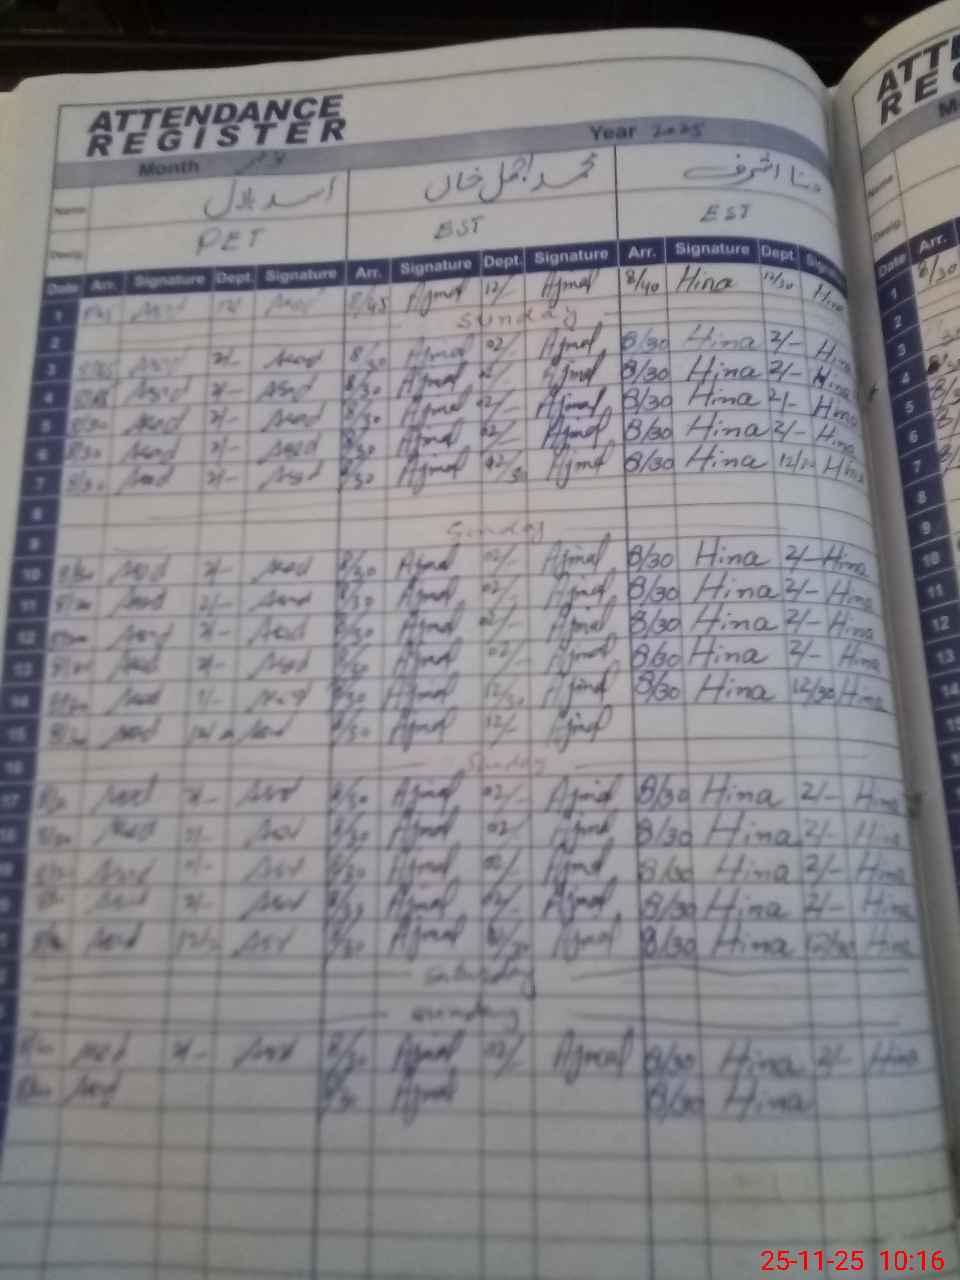 ATTENDANCE
REGISTER
Month نومبر Year 2025
Name اسد بلال محمد اجمل خاں حنا اشرف
Desig. PET EST EST
Date Arr. Signature Dept. Signature Arr. Signature Dept. Signature Arr. Signature Dept. Signature
1 Asad Asad 8/45 Ajmal 12/- Ajmal 8/40 Hina 12/30 Hina
2 Sunday
3 Asad 2/- Asad 8/30 Ajmal 02/- Ajmal 8/30 Hina 2/- Hina
4 Asad 2/- Asad 8/30 Ajmal 02/- Ajmal 8/30 Hina 2/- Hina
5 8/30 Asad 2/- Asad 8/30 Ajmal 02/- Ajmal 8/30 Hina 2/- Hina
6 8/30 Asad 2/- Asad 8/30 Ajmal 02/- Ajmal 8/30 Hina 2/- Hina
7 8/30 Asad 2/- Asad 8/30 Ajmal Ajmal 8/30 Hina Hina
8
9 Sunday
10 8/30 Asad 2/- Asad 8/30 Ajmal 02/- Ajmal 8/30 Hina 2/- Hina
11 8/30 Asad 2/- Asad 8/30 Ajmal 02/- Ajmal 8/30 Hina 2/- Hina
12 8/30 Asad 2/- Asad 8/30 Ajmal 02/- Ajmal 8/30 Hina 2/- Hina
13 8/30 Asad 2/- Asad 8/30 Ajmal 02/- Ajmal 8/30 Hina 2/- Hina
14 8/30 Asad Asad 8/30 Ajmal 12/30 Ajmal 8/30 Hina 12/30 Hina
15 8/30 Asad Asad 8/30 Ajmal 12/- Ajmal
16 Sunday
17 Asad 2/- Asad 8/30 Ajmal 02/- Ajmal 8/30 Hina 2/- Hina
8/30 Asad 2/- Asad 8/30 Ajmal 02/- Ajmal 8/30 Hina 2/- Hina
Asad 2/- Asad 8/30 Ajmal 02/- Ajmal 8/30 Hina 2/- Hina
Asad 2/- Asad 8/30 Ajmal 02/- Ajmal 8/30 Hina 2/- Hina
Asad Asad 8/30 Ajmal Ajmal 8/30 Hina 12/30 Hina
Saturday
Sunday
Asad 2/- Asad 8/30 Ajmal 02/- Ajmal 8/30 Hina 2/- Hina
Asad 8/30 Ajmal 8/30 Hina
Name
Desig.
Date Arr.
1 8/30
2
3
4
5
6
7
8
9
10
11
12
13
14
25-11-25 10:16